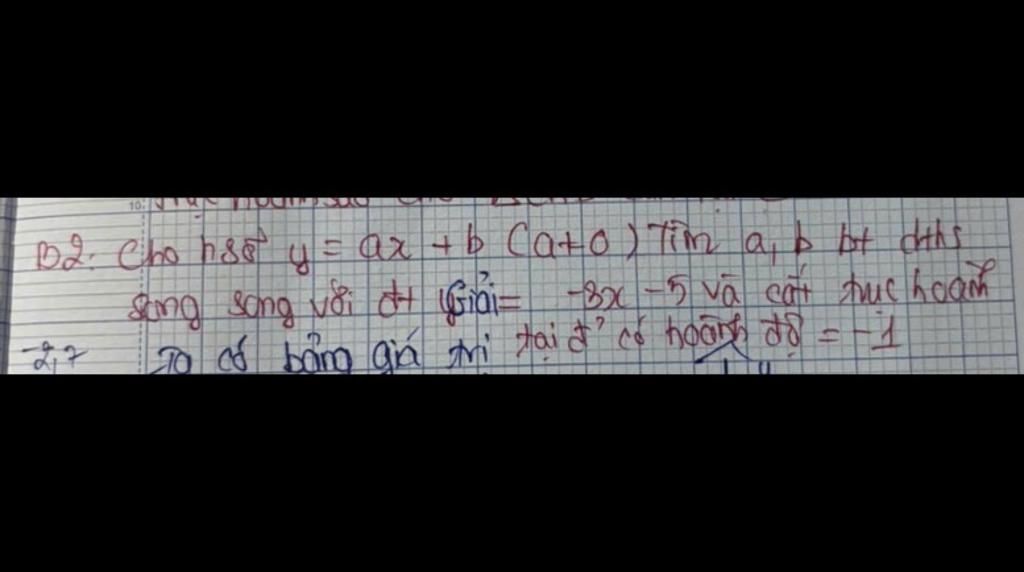 B2. Cho hsố y = ax + b (a ≠ 0) Tìm a, b bt đths
song song với đt Giải = -3x - 5 và cắt trục hoành
-2,7 Ta có bảng giá trị tại đ' có hoành độ = -1